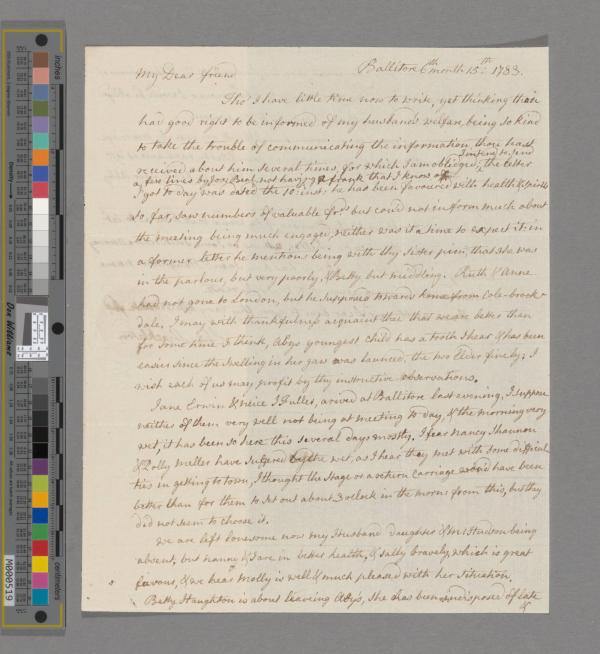 Ballitore 6th month 15th 1788.
My Dear friend
Tho' I have little time now to write, yet thinking thou
had good right to be informed of my husbands welfare, being so kind
to take the trouble of communicating the information thou hast
received about him several times, for which I am obliged, the letter
I intend to send
a few lines by Jos: not having a frank that I know of
I got to day was dated the 10 inst: he has been favoured with health & spirits
so far, saw numbers of valuable frds but coud not inform much about
the meeting being much engaged, neither was it a time to expect it: in
a former letter he mentions being with thy sister, that she was
in the parlour, but very poorly, & Betty but middling. Ruth & Anne
had not gone to London, but he supposed towards home from Colebrook-
dale. I may with thankfulness acquaint thee that we are better than
for some time I think, Abys youngest child has a tooth I hear & has been
easier since the swelling in her jaw was launced, the two Elder finely; I
wish each of us may profit by thy instructive observations.
Jane Erwin & neice J. Fuller, arived at Ballitore last evening, I suppose
neither of them very well not being at meeting to day, & the morning very
wet, it has been so here this several days mostly. I fear Nancy Shannon
& Polly Mellor have suffered by the wet, as I hear they met with some difficul
ties in getting to town, I thought the Stage or a return carriage woud have been
better than for them to set out about 3 oclock in the morng from this, but they
did not seem to choose it.
We are left lonesome now my Husband daughter & Mr Hudson being
absent, but nanne & I are in better health, & sally bravely, which is great
favours, & we hear Molly is well & much pleased with her situation.
Betty Haughton is about leaving Abys, she has been indisposed of late
&
inches
centimetres
Density
Don Williams
M000519